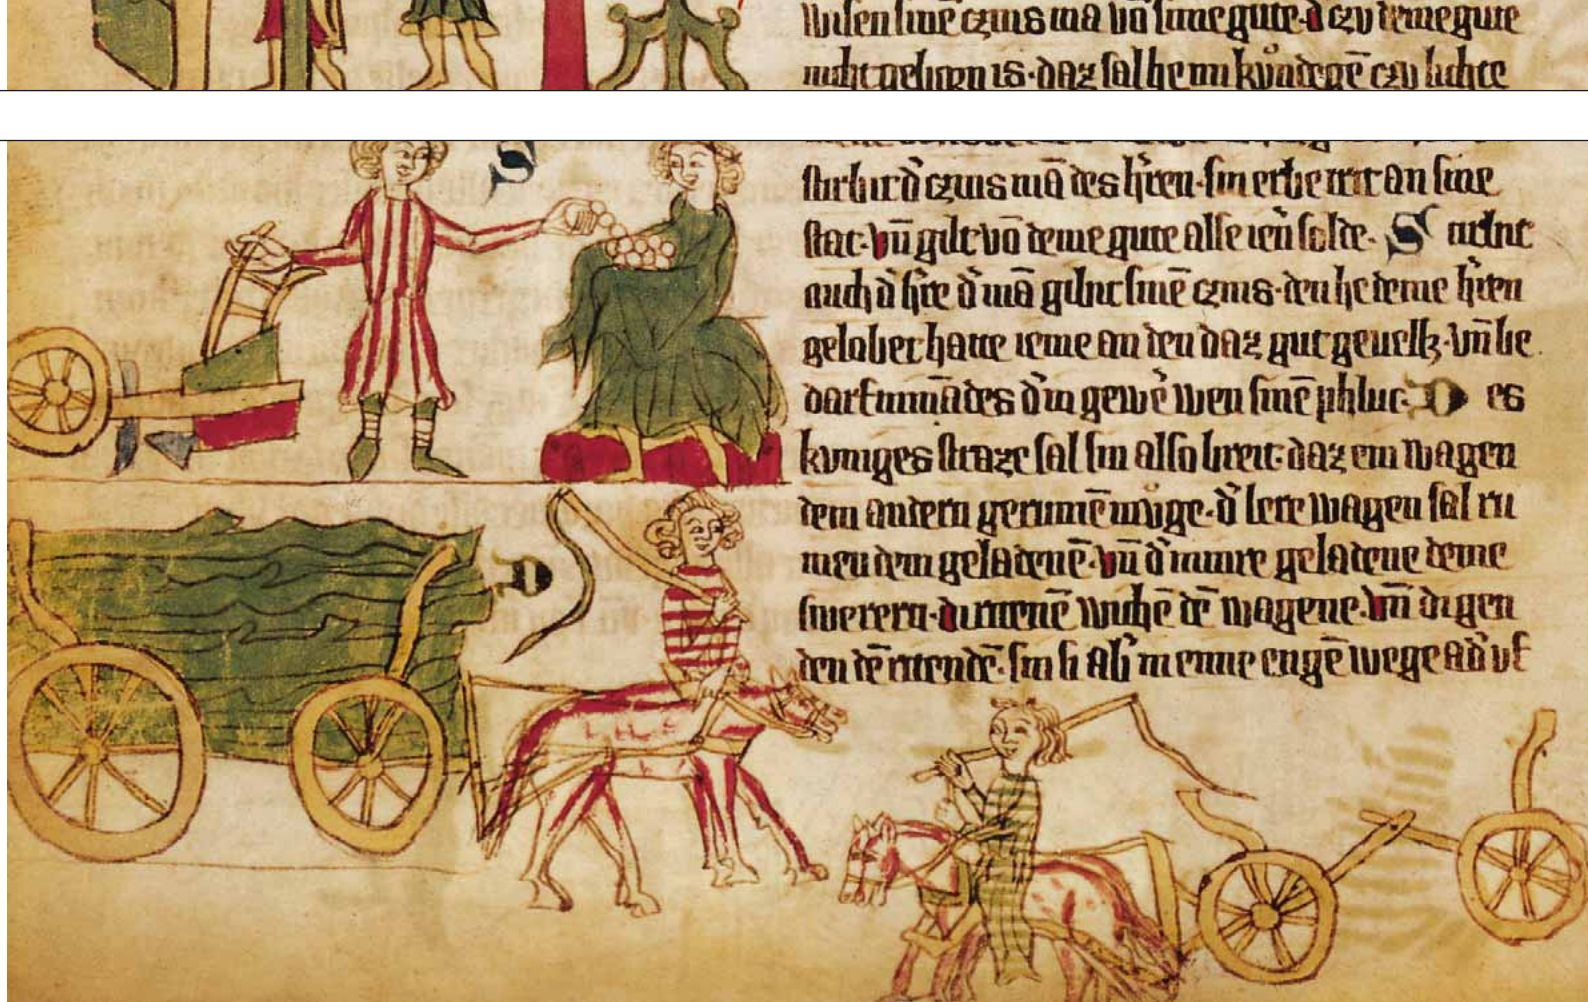 wisen sinē czins mā vō sime gute. d' czu deme gute
nicht gehorn is. daz sal he mi kůndegē czu lichte
stirbit d' czins mā des h'ren. sin erbe trit an sine
stat. vn̄ gilt vō deme gute alse ien̄ solde. S
auch d' h're d' mā gilnt sinē czins. den he deme h'ren
gelobet hatte ieme an den daz gut gevellt. vn̄ be
darf nimādes d' in gewe' wen sinē phluc. D es
kvniges straze sal sin also breit. daz ein wagen
dem andern gerumē mvge. d' lere wagen sal ru
men dem geladenē. vn̄ d' minre geladene deme
swerern. di ritenē wichē dē wagene. vn̄ di gen
den dē ritendē. sin si ab' in eime engē wege ad' vf